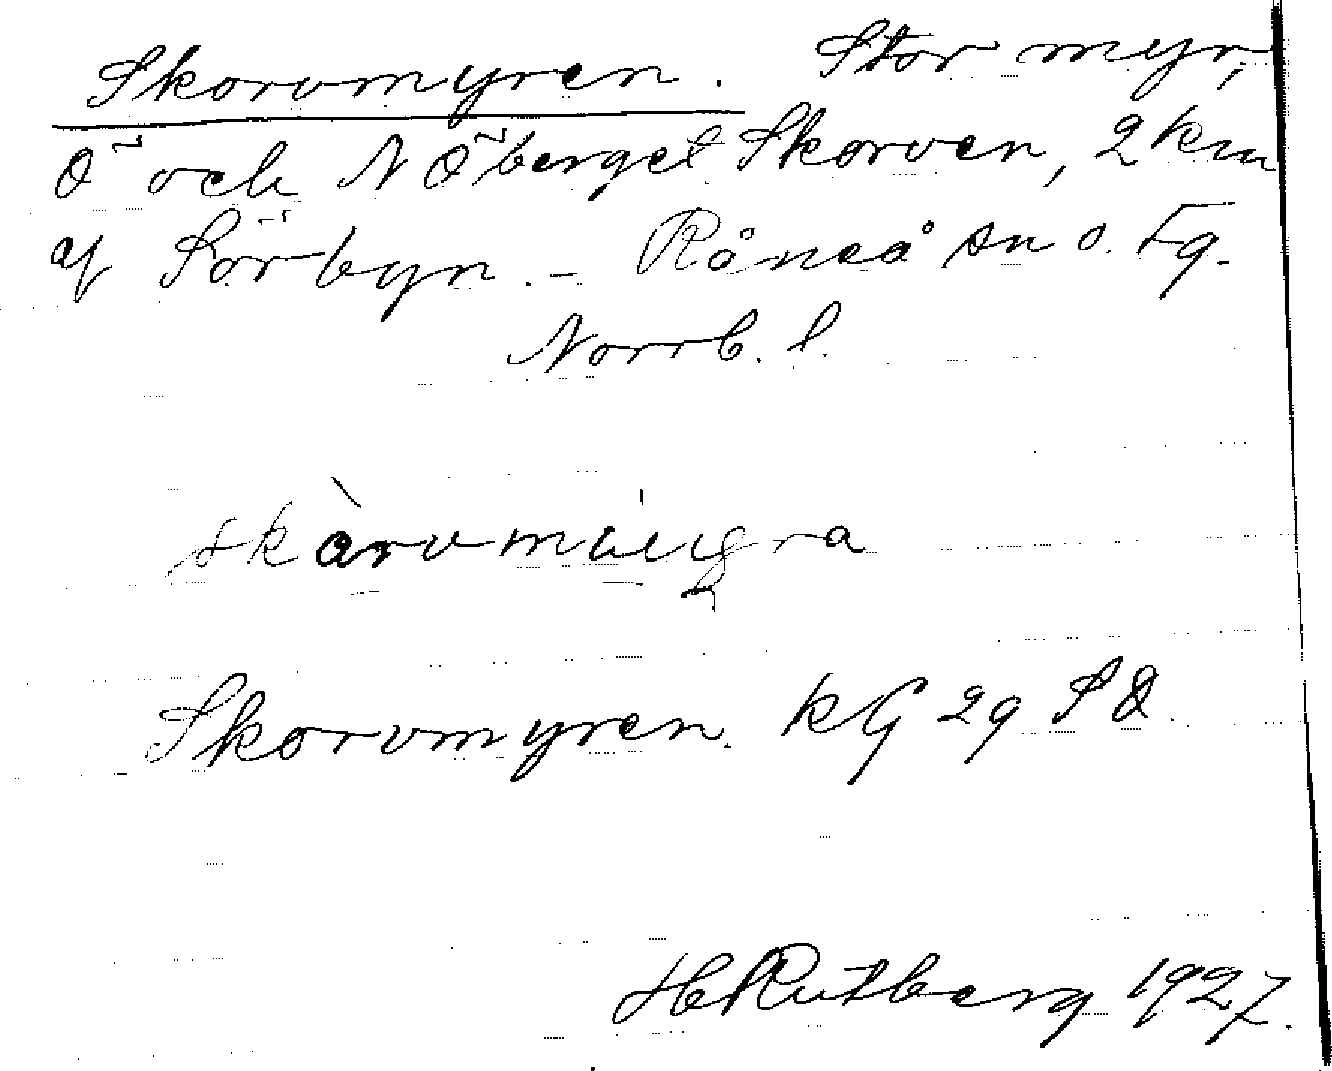 Skorvmyren. Stor myr,
Ö och N Ö berget Skorven, 2 km
af Sörbyn. - Råneå sn o. Fg.
Norrb. l.
Skorvmyren. KG 29 S Ö
H Rutberg 1927.